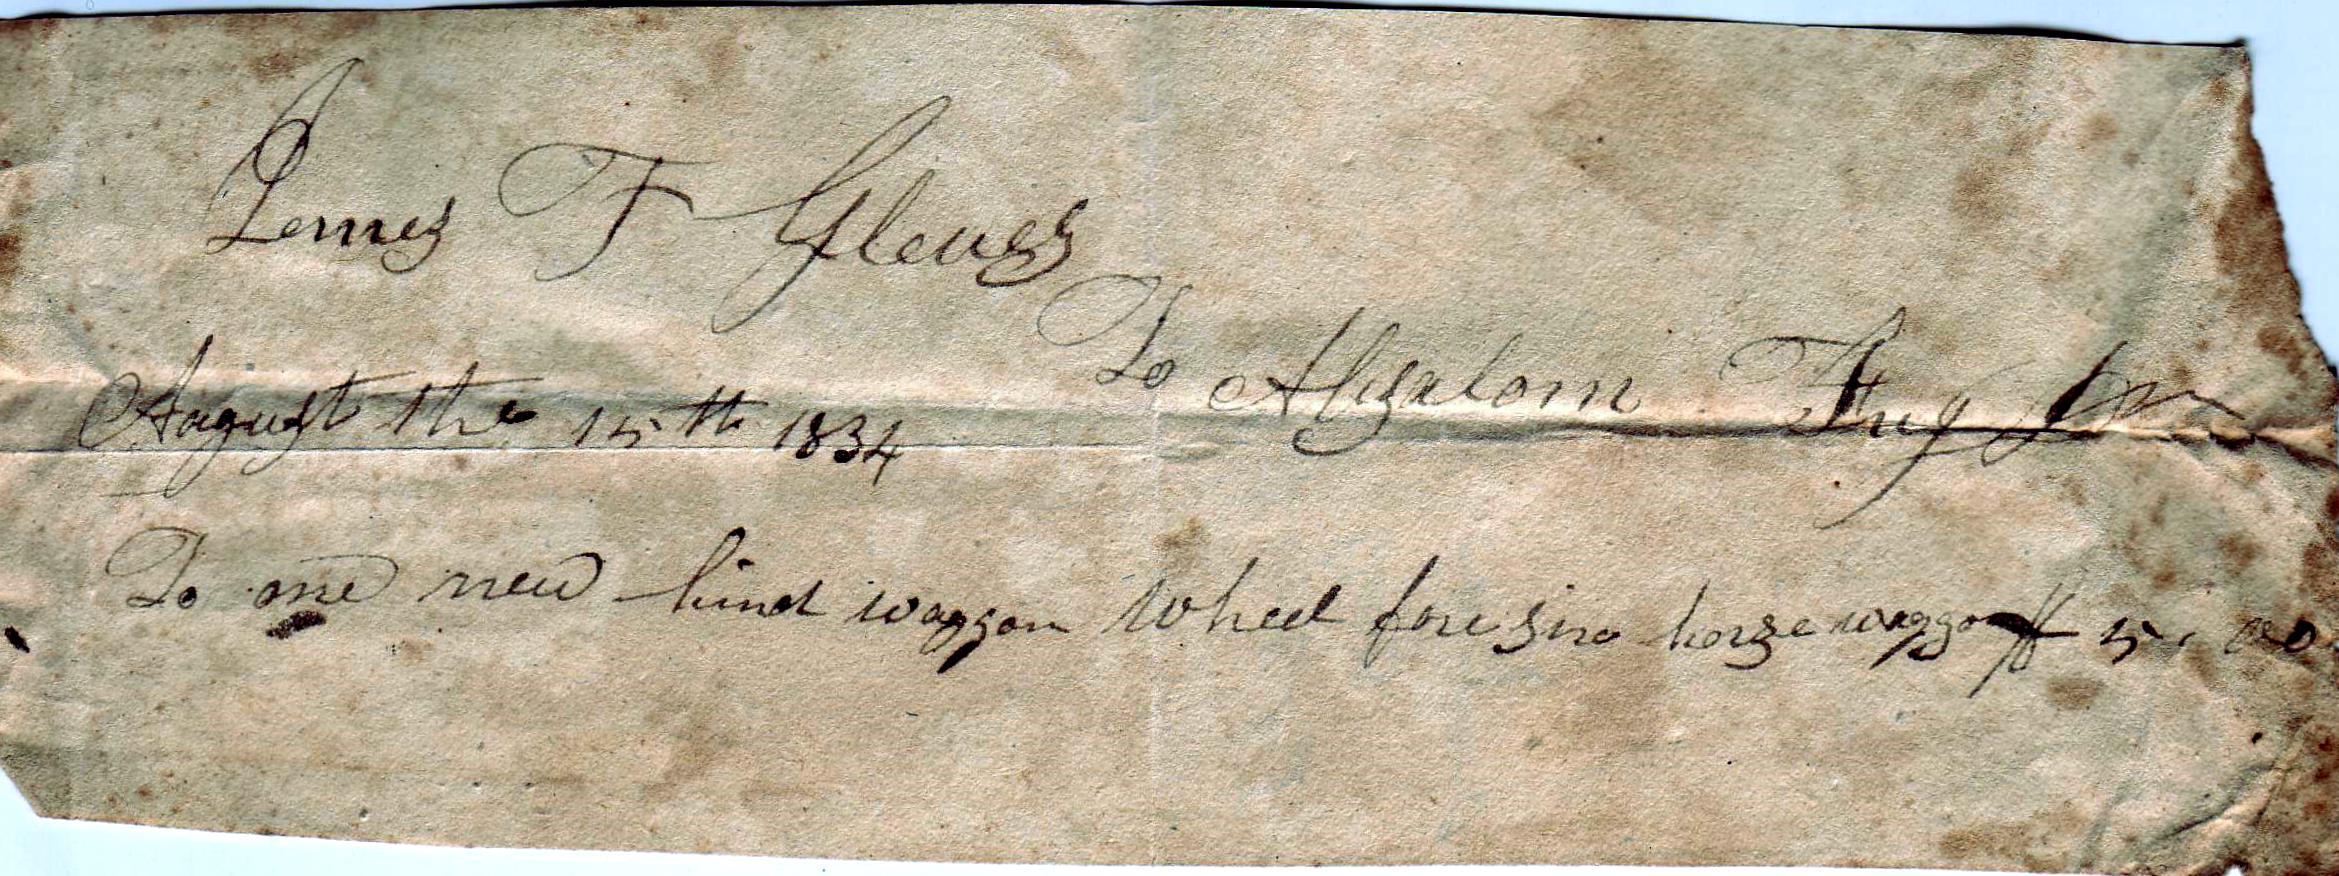 James F Gleves
To Absalom Fug Dr
August the 15th 1834
To one new hind waggon wheel fore six horse waggon $ 5.00